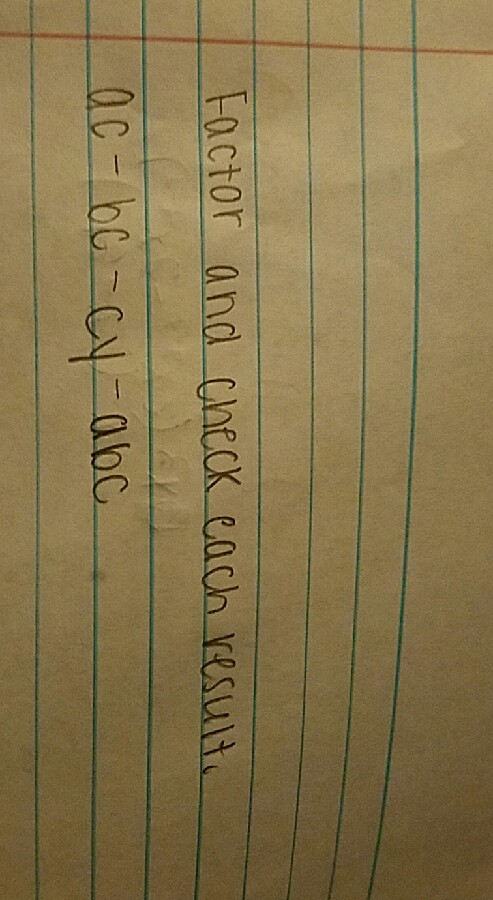 Factor and check each result.
ac - bc - cy - abc